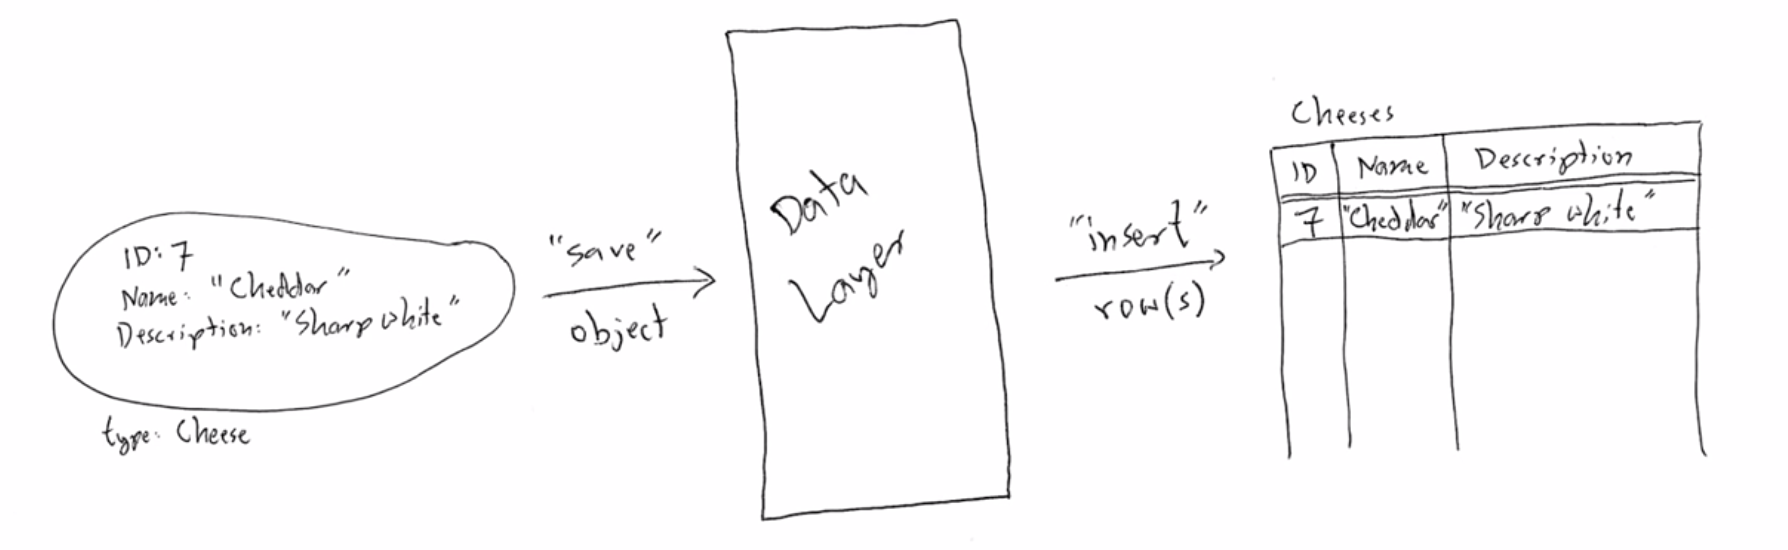 ID: 7
Name: "Cheddar"
Description: "Sharp white"
type: Cheese
"save"
object
Data
Layer
"insert"
row(s)
Cheeses
ID Name Description
7 "Cheddar" "Sharp white"